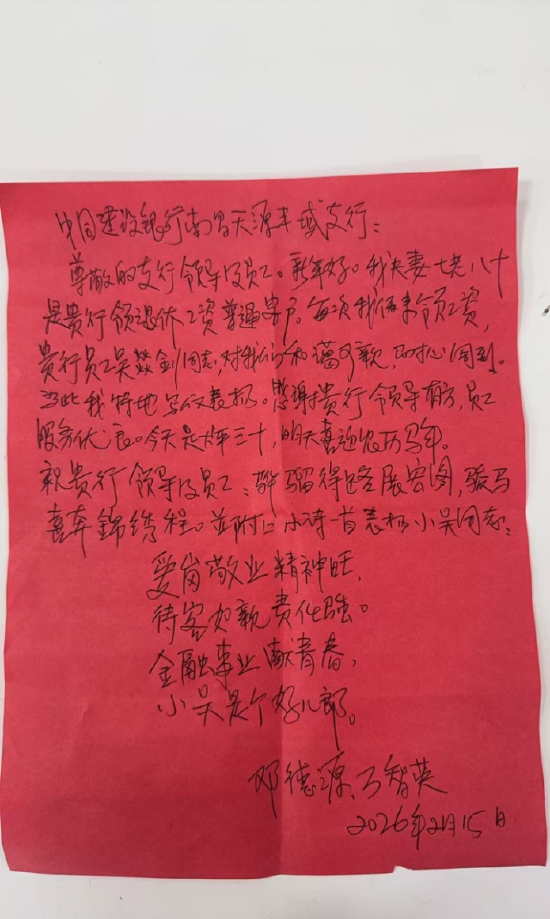 中国建设银行南昌天源丰城支行：
尊敬的支行领导及员工。新年好。我夫妻七老八十
是贵行领退休工资普通客户。每次我们来领工资，
贵行员工吴 剑同志，对我们和蔼可亲，耐心周到。
为此我特地写文表扬。感谢贵行领导有方，员工
服务优良。今天是大年三十，明天喜迎农历马年。
祝贵行领导及员工：骅骝得路展宏图，骏马
喜奔錦绣程。并附上小诗一首表扬小吴同志：
爱岗敬业精神旺，
待客如亲责任强。
金融事业献青春，
小吴是个好儿郎。
邓德源、万智英
2026年2月15日